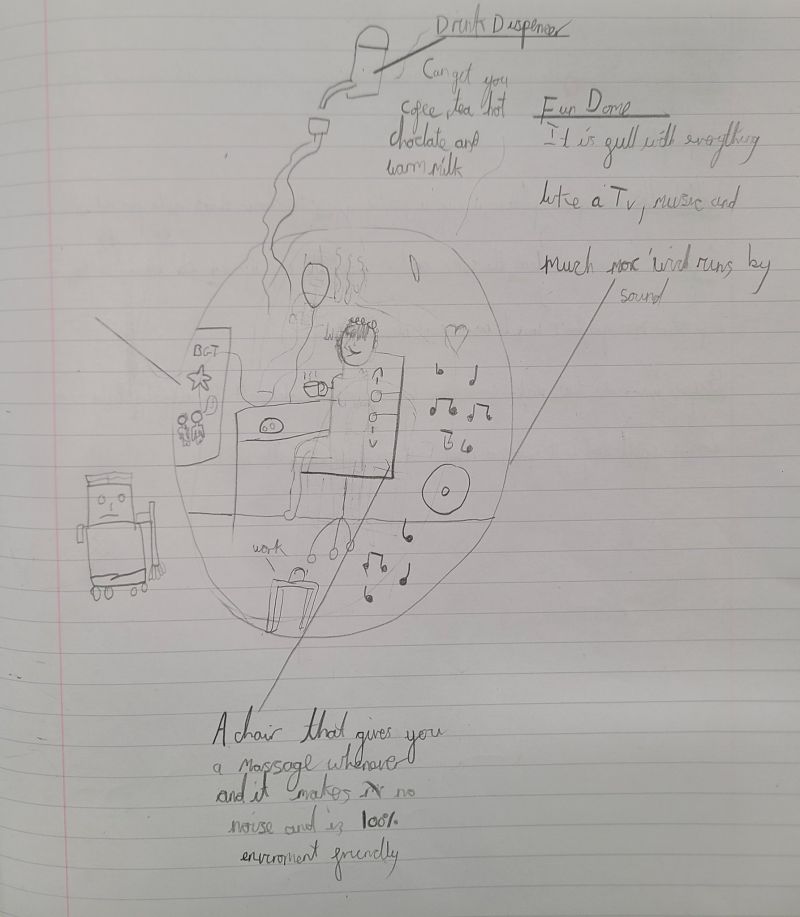 Drink Dispencer
Can get you
cofee, tea hot
choclate and
warm milk
Fun Dome
It is full with everything
like a Tv, music and
much more and runs by
sound
BGT
work
A chair that gives you
a massage whenever
and it makes no
noise and is 100%
enviroment friendly